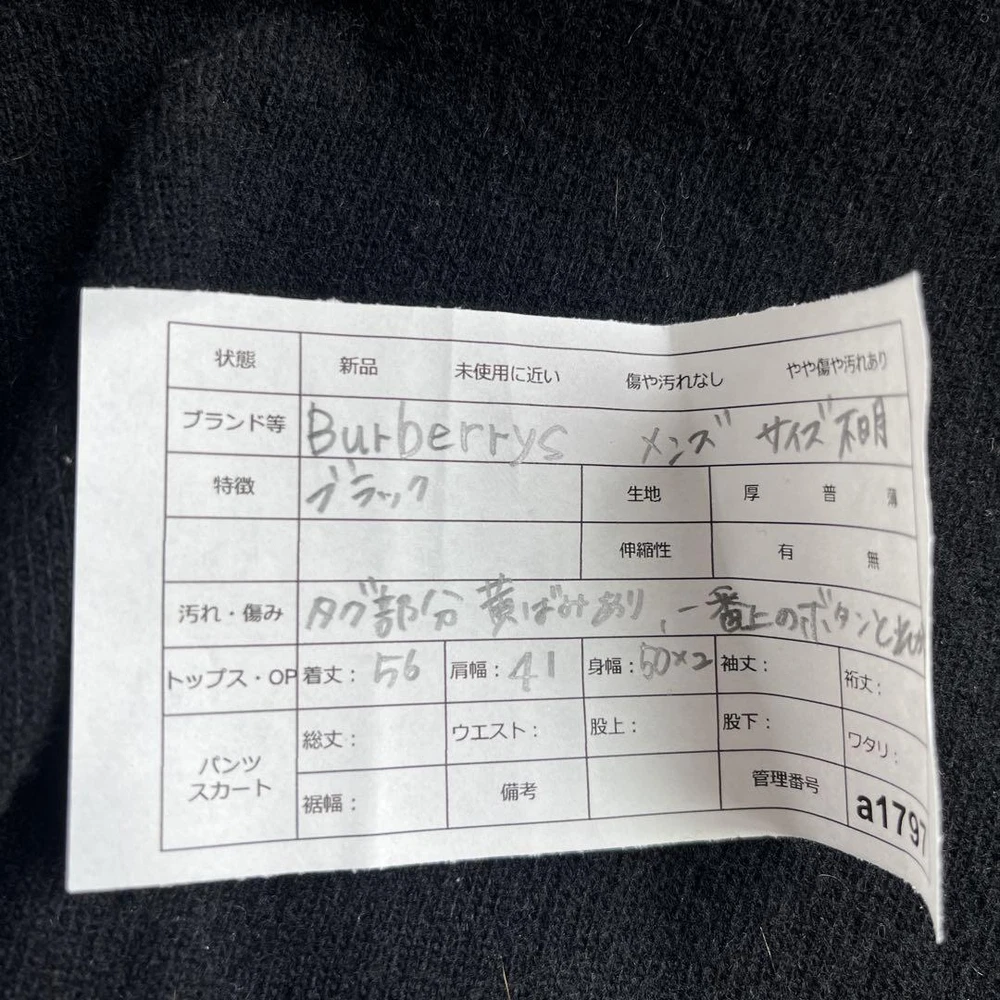 状態 新品 未使用に近い 傷や汚れなし やや傷や汚れあり
ブランド等 Burberrys メンズ サイズ不明
特徴 ブラック 生地 厚 普 薄
伸縮性 有 無
汚れ・傷み タグ部分 黄ばみあり、一番上のボタンとれ
トップス・OP 着丈：56 肩幅：41 身幅：50×2 袖丈： 裄丈：
パンツ スカート 総丈： ウエスト： 股上： 股下： ワタリ：
裾幅： 備考 管理番号 a1797